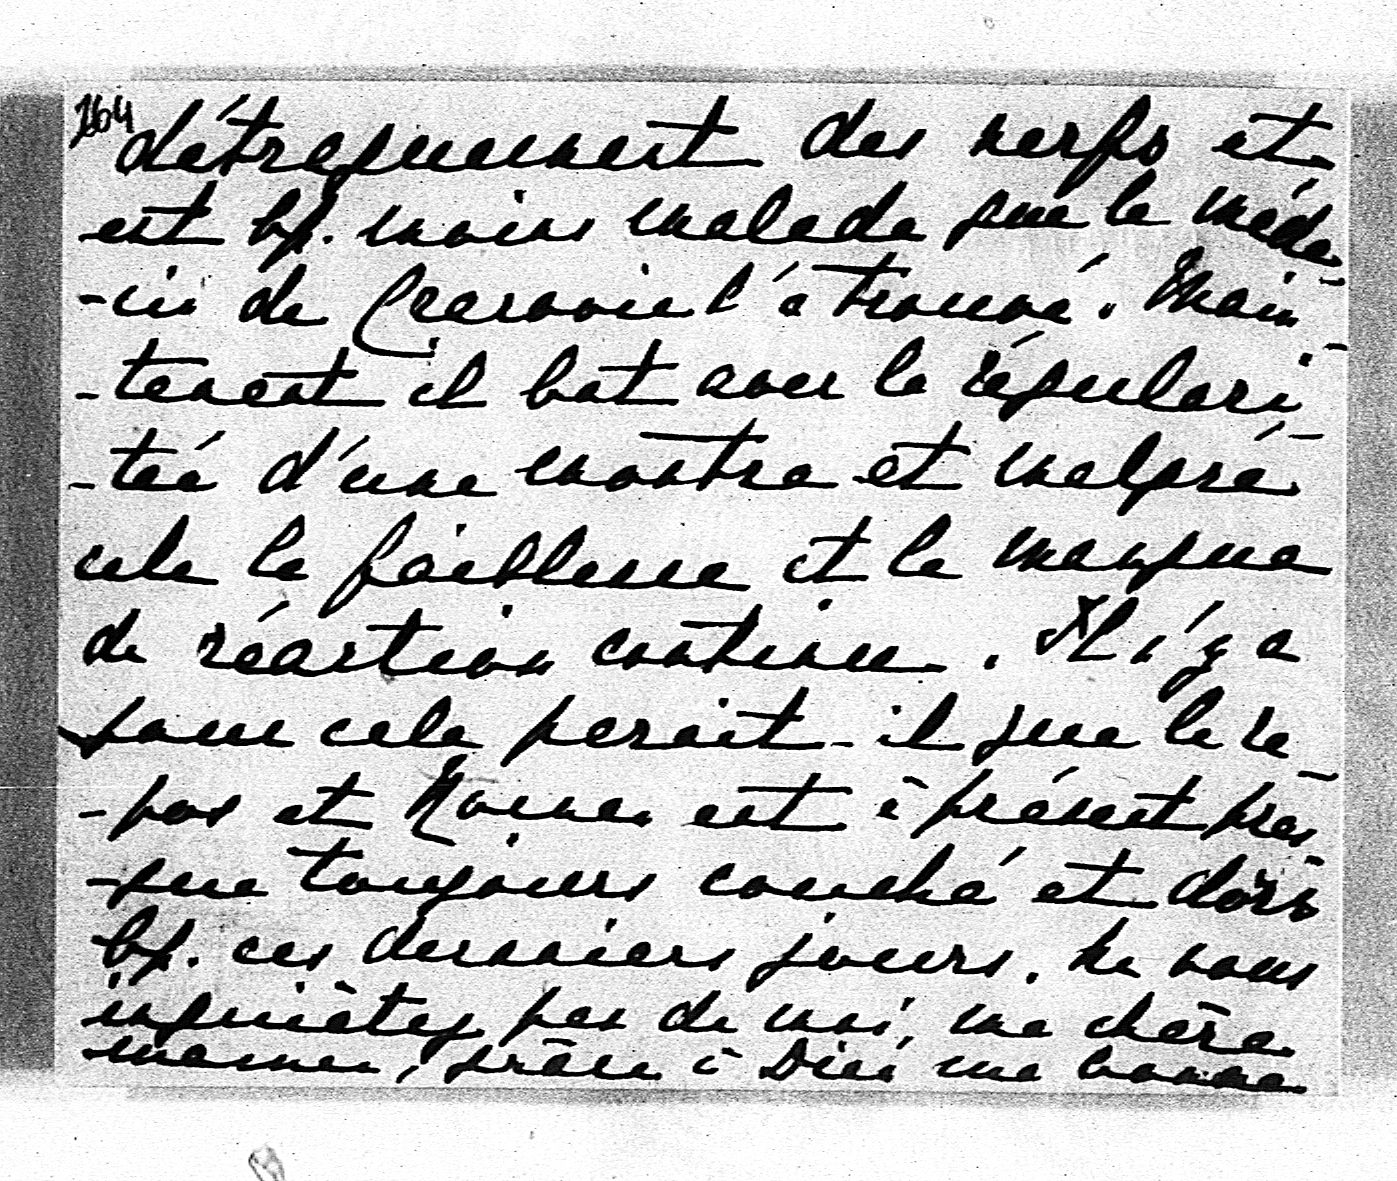 164
détraquement des nerfs et
est bp. moins malade que le méde
-cin de Cracovie l'a trouvé. Main
-tenant il bat avec la régulari
-té d'une montre et malgré
cela la faiblesse et le manque
de réaction continue. Il n'y a
pour cela parait-il que le re
-pos et est à présent pres
-que toujours couché et dors
bp. ces derniers jours. Ne vous
inquiètez pas de moi, ma chère
maman, grâce à Dieu ma bonne